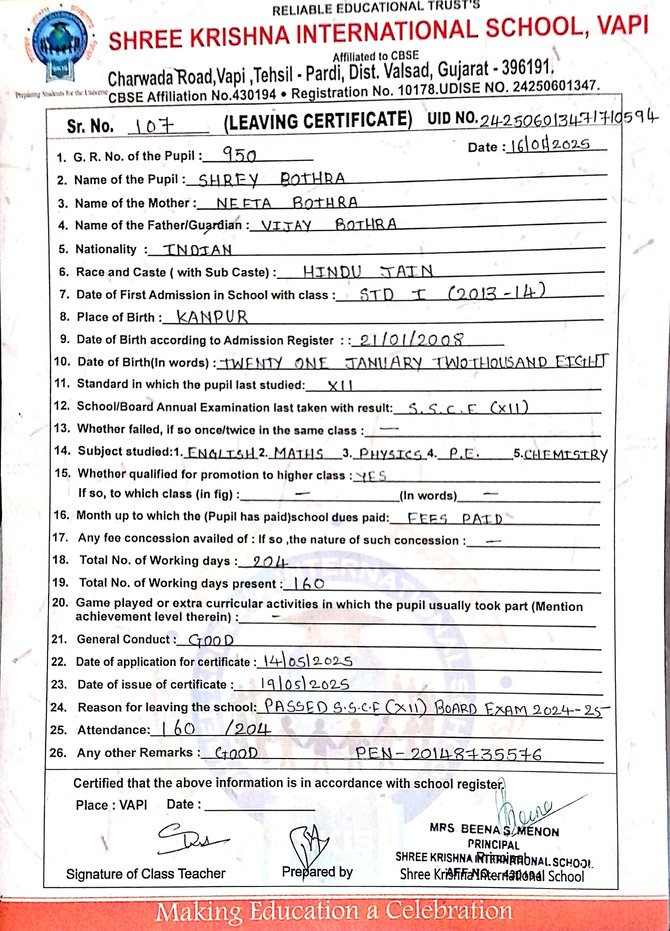 RELIABLE EDUCATIONAL TRUST'S
SHREE KRISHNA INTERNATIONAL SCHOOL, VAPI
Affiliated to CBSE
Charwada Road,Vapi ,Tehsil - Pardi, Dist. Valsad, Gujarat - 396191.
Preparing Students for the Universe
CBSE Affiliation No.430194 • Registration No. 10178.UDISE NO. 24250601347.
Sr. No. 107 (LEAVING CERTIFICATE) UID NO. 242506013471710594
Date : 16/01/2025
1. G. R. No. of the Pupil : 950
2. Name of the Pupil : SHREY BOTHRA
3. Name of the Mother : NEETA BOTHRA
4. Name of the Father/Guardian : VIJAY BOTHRA
5. Nationality : INDIAN
6. Race and Caste ( with Sub Caste) : HINDU JAIN
7. Date of First Admission in School with class : STD I (2013-14)
8. Place of Birth : KANPUR
9. Date of Birth according to Admission Register : : 21/01/2008
10. Date of Birth(In words) : TWENTY ONE JANUARY TWOTHOUSAND EIGHT
11. Standard in which the pupil last studied: XII
12. School/Board Annual Examination last taken with result: S.S.C.E (XII)
13. Whether failed, if so once/twice in the same class : —
14. Subject studied:1. ENGLISH 2. MATHS 3. PHYSICS 4. P.E. 5.CHEMISTRY
15. Whether qualified for promotion to higher class : YES
If so, to which class (in fig) : — (In words) —
16. Month up to which the (Pupil has paid)school dues paid: FEES PAID
17. Any fee concession availed of : If so ,the nature of such concession : —
18. Total No. of Working days : 204
19. Total No. of Working days present : 160
20. Game played or extra curricular activities in which the pupil usually took part (Mention
achievement level therein) : -
21. General Conduct : GOOD
22. Date of application for certificate : 14/05/2025
23. Date of issue of certificate : 19/05/2025
24. Reason for leaving the school: PASSED S.S.C.E (XII) BOARD EXAM 2024-25
25. Attendance: 160 /204
26. Any other Remarks : GOOD PEN-20148735576
Certified that the above information is in accordance with school register.
Place : VAPI Date :
MRS BEENA S. MENON
PRINCIPAL
SHREE KRISHNA INTERNATIONAL SCHOOL
Principal
AFF.NO.-430194
Signature of Class Teacher Prepared by Shree Krishna International School
Making Education a Celebration